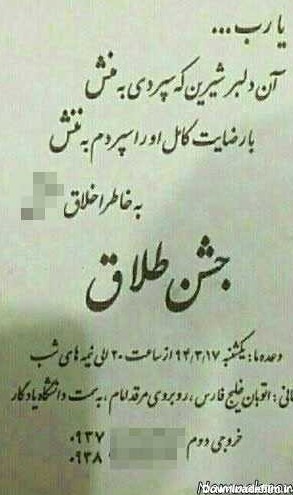 یا رب ...
آن دلبر شیرین که سپردی به منش
با رضایت کامل او را سپردم به ننش
به خاطر اخلاق
جشن طلاق
وعده ما: یکشنبه ۹۴,۳,۱۷ از ساعت ۲۰ الی نیمه های شب
نی: اتوبان خلیج فارس، روبروی مرقد امام، به سمت دانشگاه یادگار
خروجی دوم ۰۹۳۷
۰۹۳۸